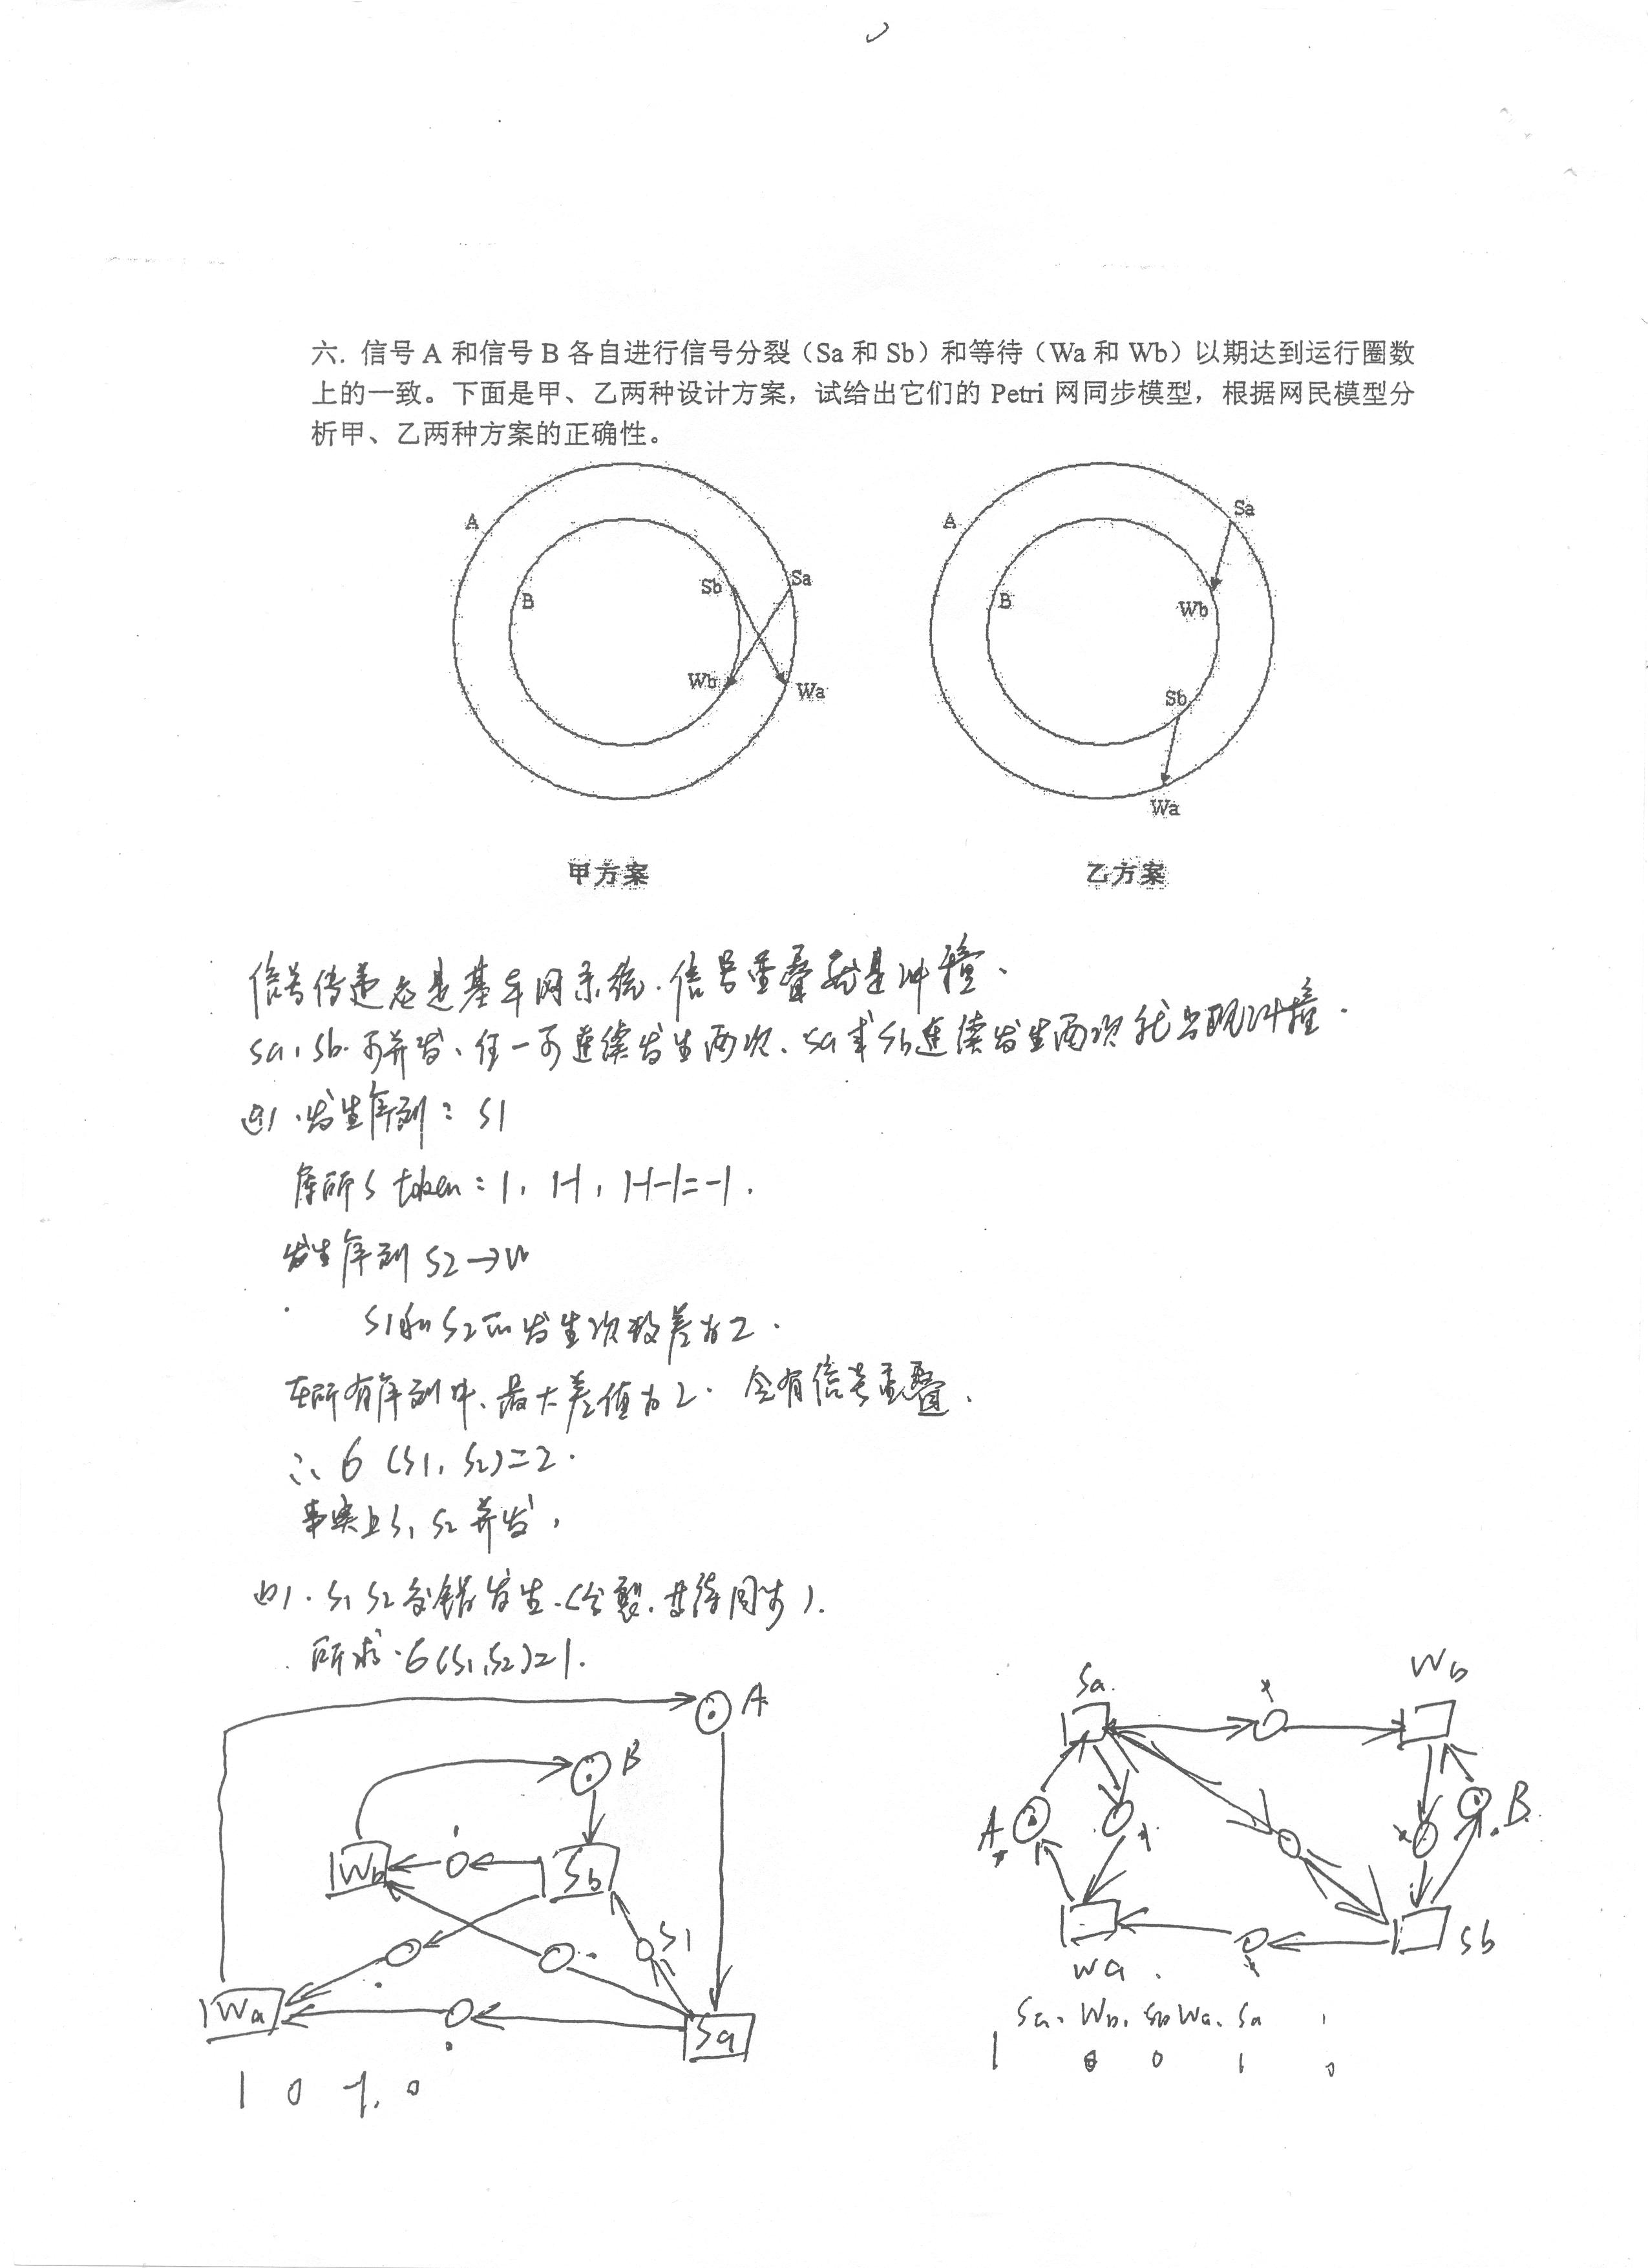 六. 信号 A 和信号 B 各自进行信号分裂（Sa 和 Sb）和等待（Wa 和 Wb）以期达到运行圈数
上的一致。下面是甲、乙两种设计方案，试给出它们的 Petri 网同步模型，根据网民模型分
析甲、乙两种方案的正确性。
A
B
Sb
Sa
Wb
Wa
A
B
Sa
Wb
Sb
Wa
甲方案
乙方案
信号传递总是基本网系统. 信号重叠就是冲撞.
Sa, Sb 可并发、任一可连续发生两次、Sa或Sb连续发生两次就出现冲撞.
发生序列: S1
库所S token: 1, 1-1, 1-1-1=-1.
发生序列 S2→W
S1和S2的发生次数差为2.
在所有序列中、最大差值为2. 会有信号重叠.
∴ 6 (S1, S2)=2.
事实上S1 S2 并发,
S1 S2 交错发生.(分裂.等待同步).
所求 6(S1,S2)=1.
A
B
Wb
Sb
S1
Wa
Sa
1 0 -1, 0
Sa
Wb
A
B
Wa
Sb
Sa. Wb. Sb Wa. Sa
1 0 0 1 0